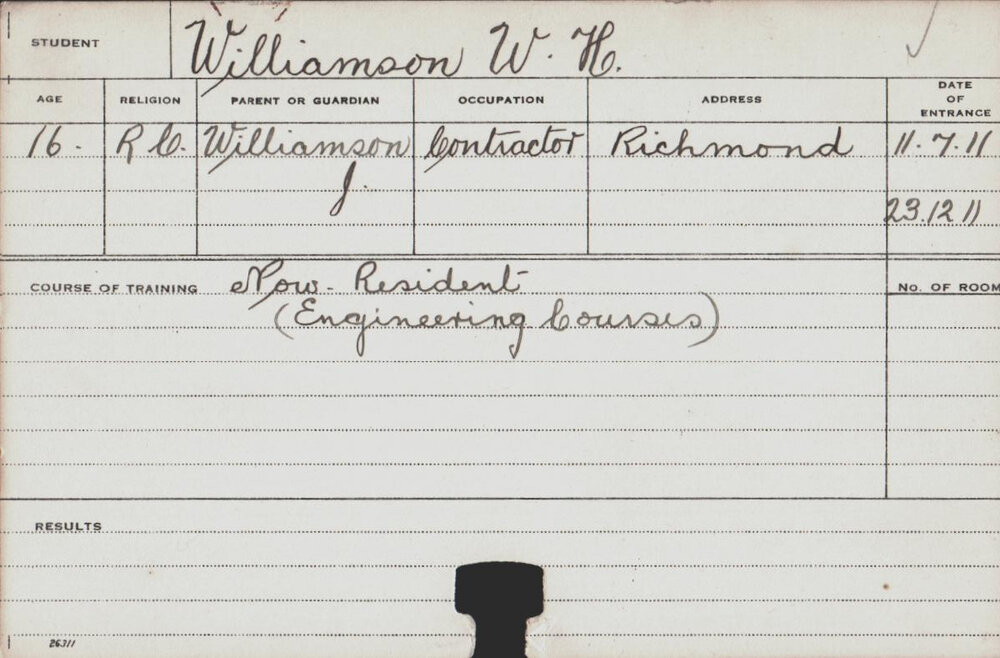 STUDENT Williamson W. H.
AGE RELIGION PARENT OR GUARDIAN OCCUPATION ADDRESS DATE OF ENTRANCE
16. R C. Williamson Contractor Richmond 11.7.11
J.
23.12 11
COURSE OF TRAINING Now-Resident No. OF ROOM
(Engineering Courses)
RESULTS
26311